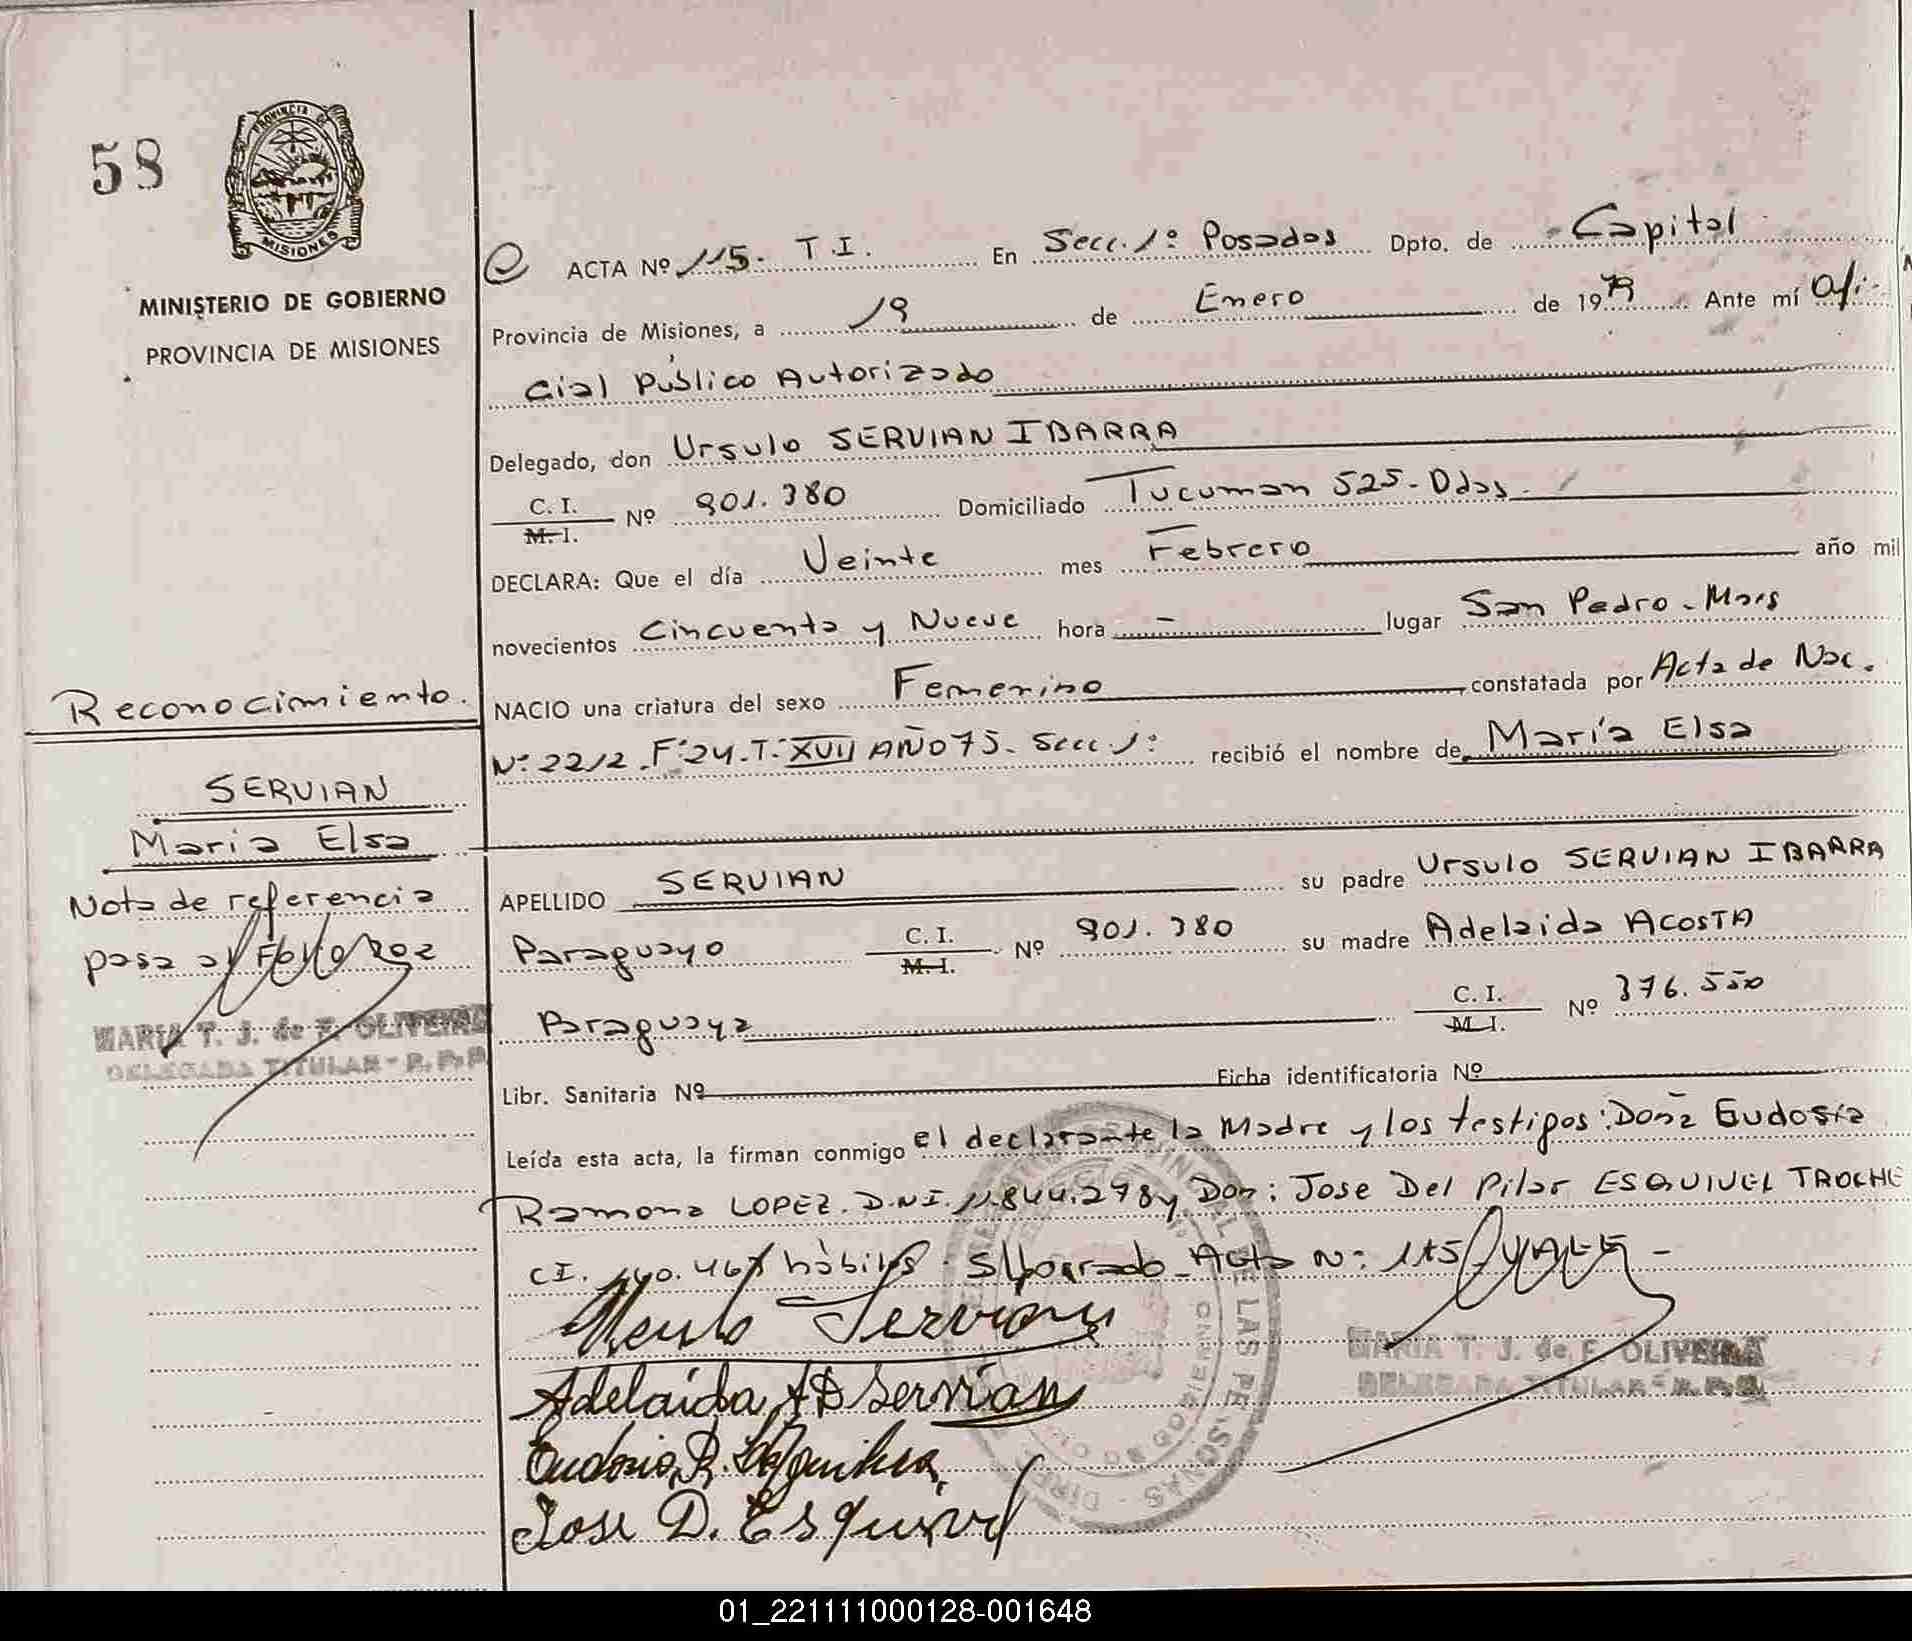 58
PROVINCIA DE
MISIONES
MINISTERIO DE GOBIERNO
PROVINCIA DE MISIONES
ACTA Nº 115. T.I. En Secc. 1º Posadas Dpto. de Capital
Provincia de Misiones, a 19 de Enero de 1979 Ante mí Ofi-
cial Público Autorizado
Delegado, don Ursulo SERVIAN IBARRA
C. I. M. I. Nº 901.380 Domiciliado Tucuman 525-Pdas.
DECLARA: Que el día Veinte mes Febrero año mil
novecientos Cincuenta y Nueve hora - lugar San Pedro - Mnes
NACIO una criatura del sexo Femenino constatada por Acta de Nac.
Nº: 2212. Fº 24. T: XVII AÑO 75- Secc 1º recibió el nombre de María Elsa
APELLIDO SERVIAN su padre Ursulo SERVIAN IBARRA
Paraguayo C. I. M. I. Nº 901.380 su madre Adelaida ACOSTA
Paraguaya C. I. M. I. Nº 376.550
Libr. Sanitaria Nº Ficha identificatoria Nº
Leída esta acta, la firman conmigo el declarante la Madre y los testigos: Doña Eudosia
Ramona LOPEZ. D.N.I. 11.844.298 y Don: Jose Del Pilar ESQUIVEL TROCHE
CI. 140.467 hábiles. S/borrado Acta Nº: 115 VALE-
Servian
Adelaida A D Servian
Jose D. Esquivel
MARIA T. J. de F. OLIVEIRA
DELEGADA TITULAR - R. P. P.
Reconocimiento.
SERVIAN
María Elsa
Nota de referencia
pasa al Folio 202
MARIA T. J. de F. OLIVEIRA
DELEGADA TITULAR - R. P. P.
01_221111000128-001648